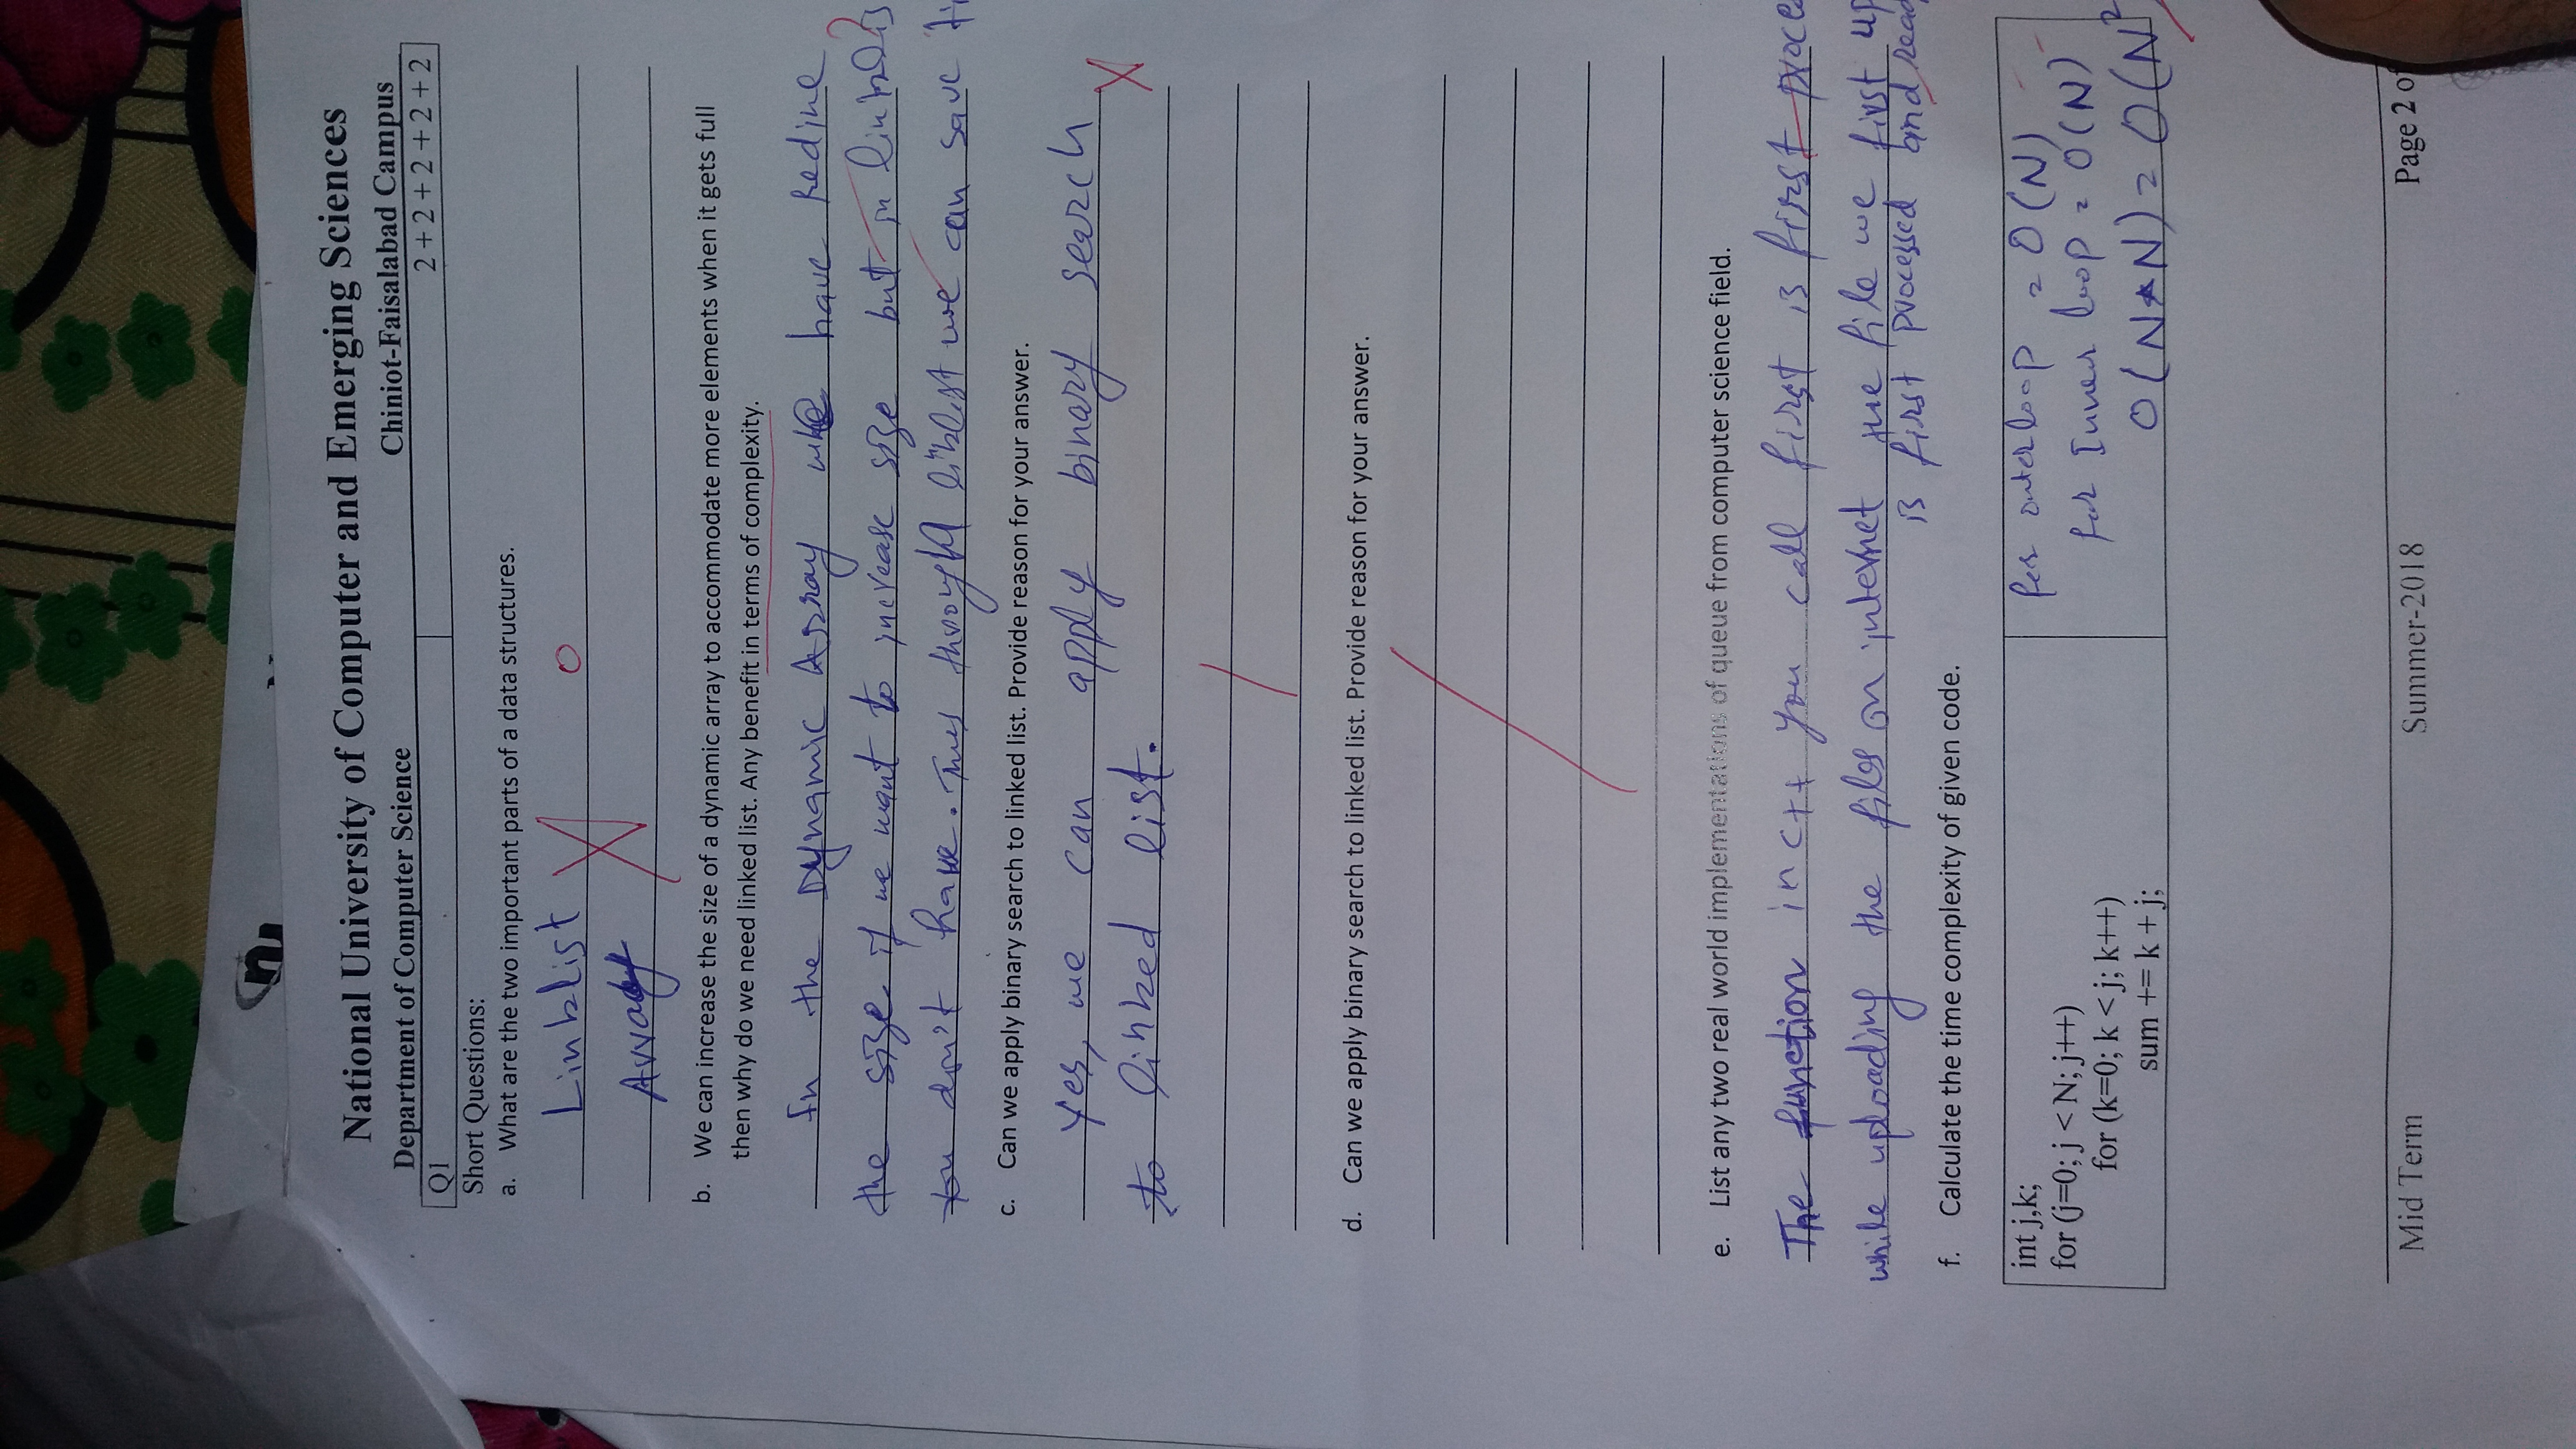 National University of Computer and Emerging Sciences
Department of Computer Science Chiniot-Faisalabad Campus
Q1 2 + 2 + 2 + 2 + 2
Short Questions:
a. What are the two important parts of a data structures.
Linklist
O
Array
b. We can increase the size of a dynamic array to accommodate more elements when it gets full
then why do we need linked list. Any benefit in terms of complexity.
In the Dynamic Array we have
the size if we want to increase size but in
you don't have. Thus through linklist we can save
c. Can we apply binary search to linked list. Provide reason for your answer.
Yes, we can apply binary search
to linked list.
d. Can we apply binary search to linked list. Provide reason for your answer.
e. List any two real world implementations of queue from computer science field.
The function in c++ you call first is first proce
while uploading the files on internet the file we first up
is first processed and read
f. Calculate the time complexity of given code.
int j,k; for outer loop = O(N)
for (j=0; j < N; j++) for Inner loop = O(N)
for (k=0; k < j; k++) O(N*N) = O(N²
sum += k + j;
Mid Term Summer-2018 Page 2 of